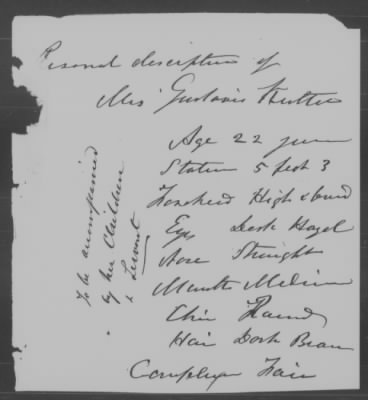 Personal description of
Mrs Gustavis
Age 22 years
Stature 5 feet 3
Forehead High & broad
Eyes Dark Hazel
Nose Straight
Mouth Medium
Chin Round
Hair Dark Brown
Complexion Fair
To be accompanied
by her Children
& Servant